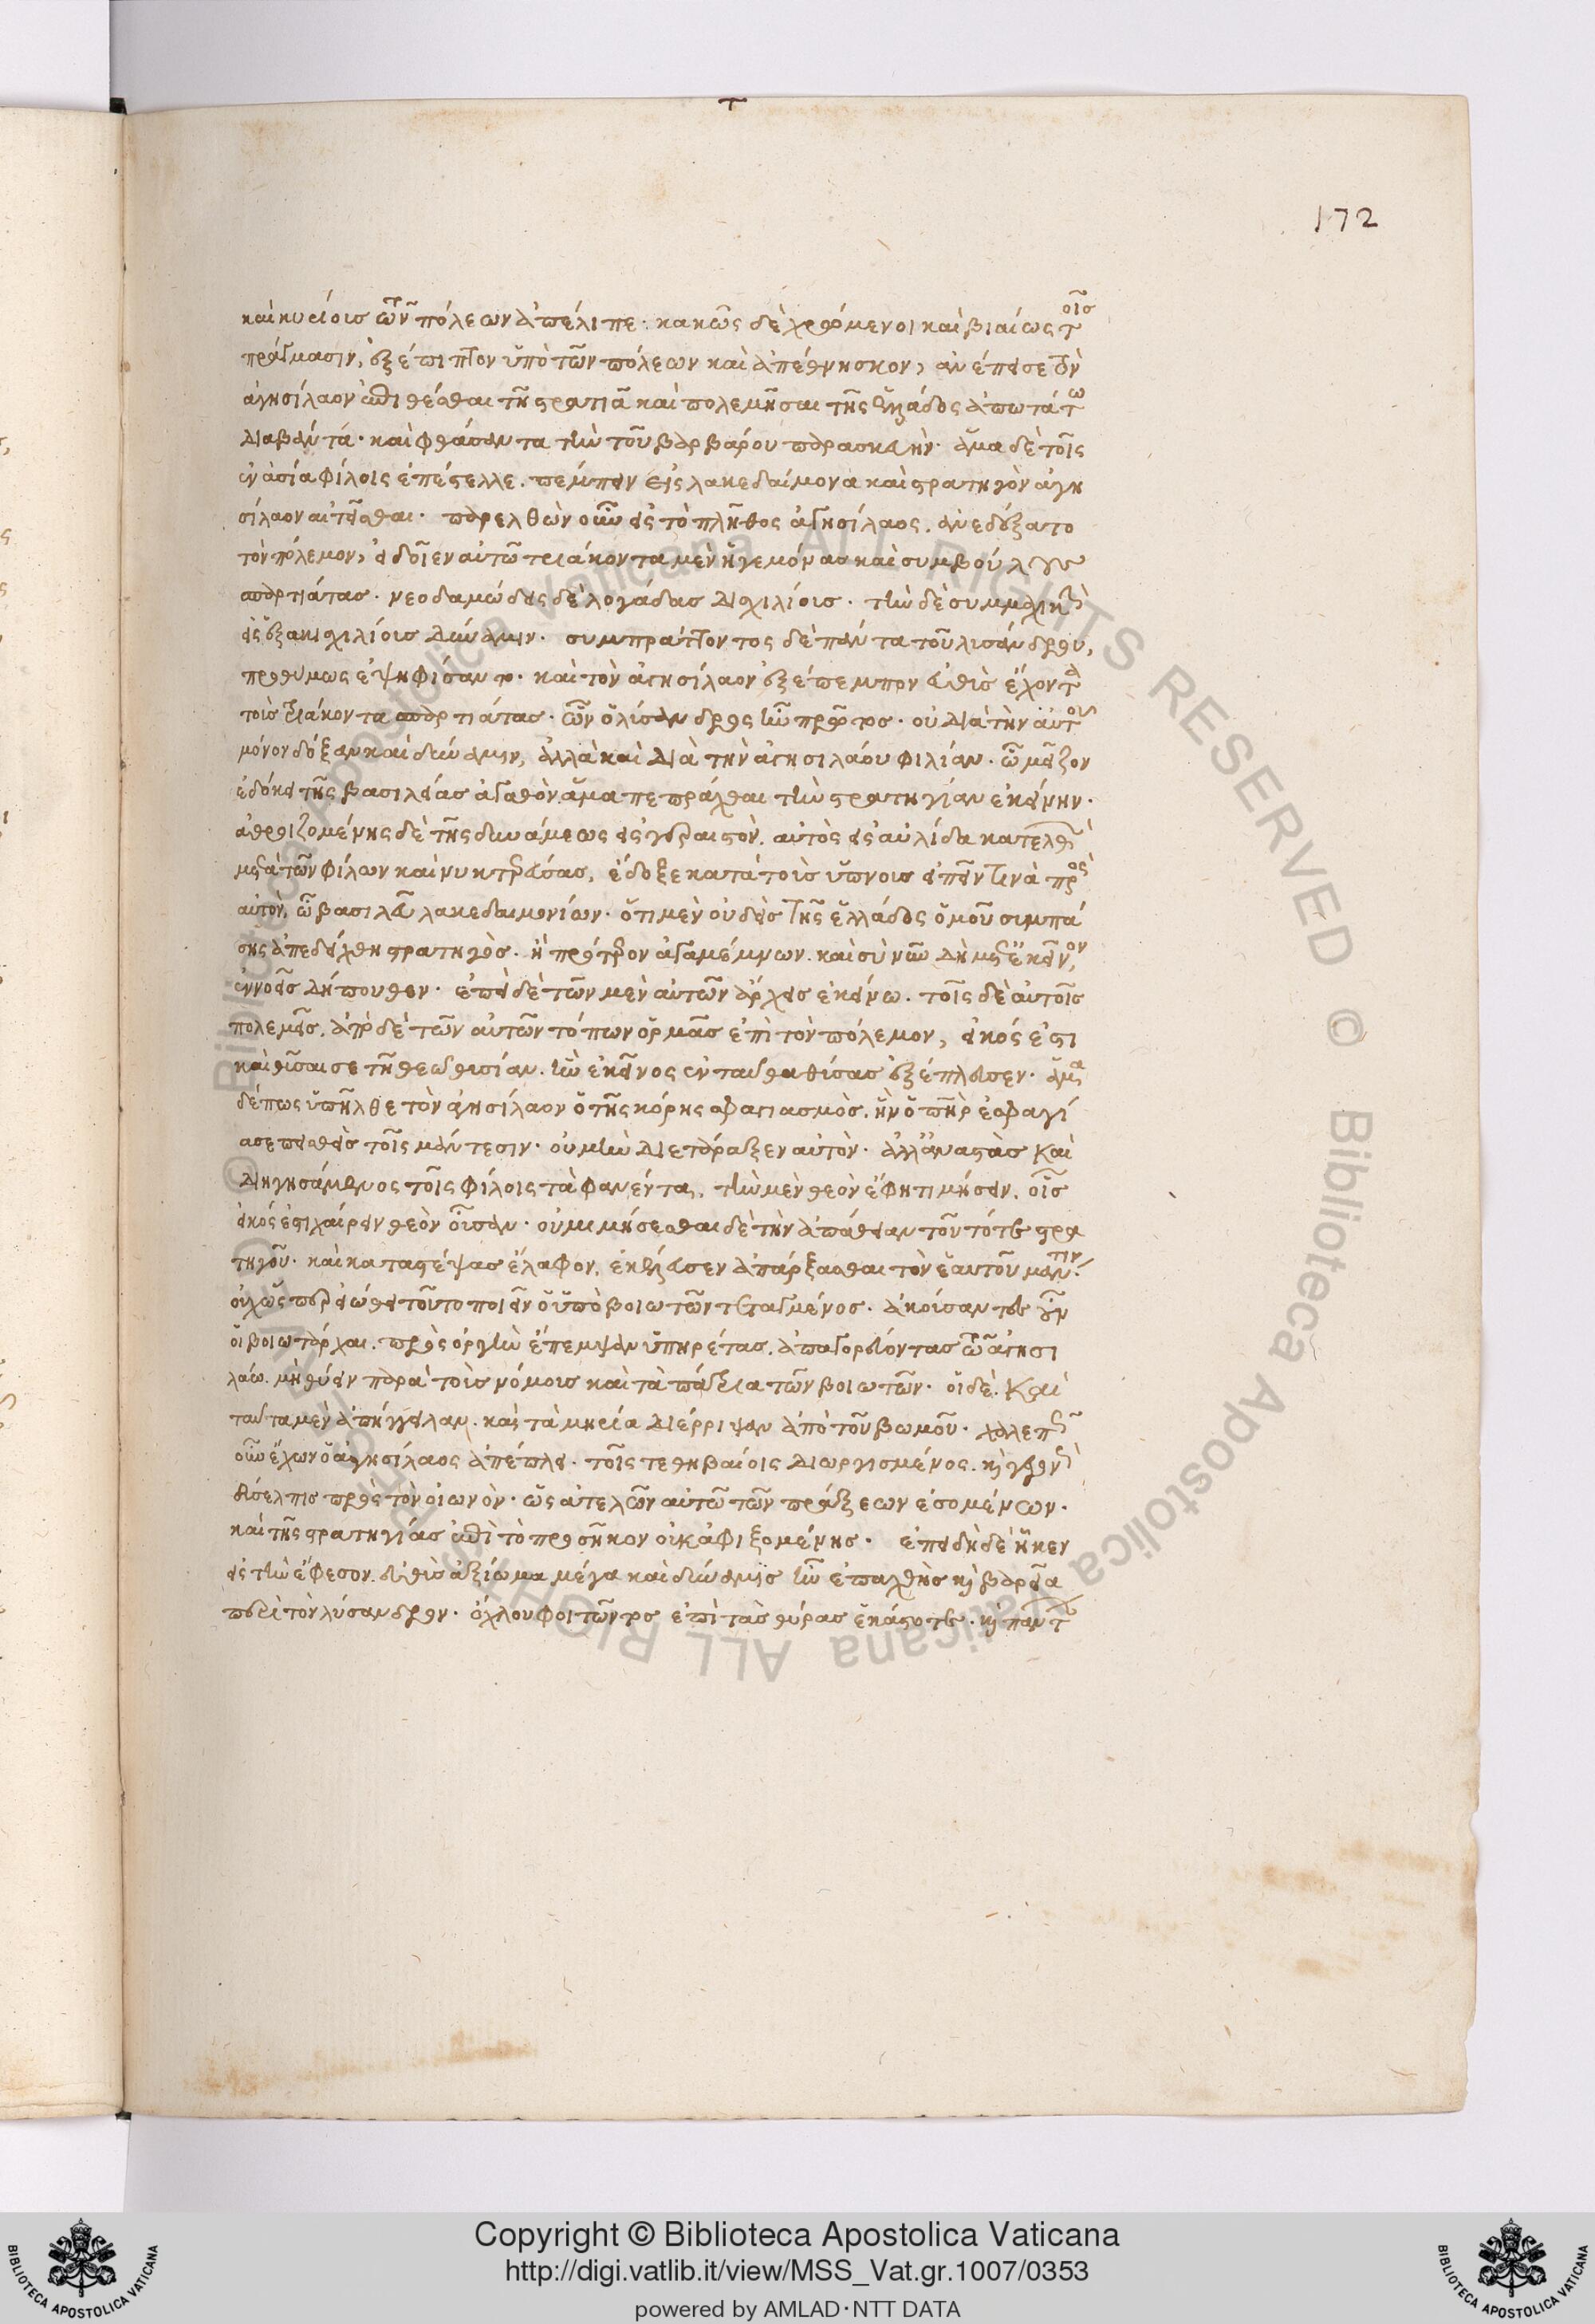 172
καὶ κυρίους τῶν πόλεων ἀπέλιπε· κακῶς δὲ χρώμενοι καὶ βιαίως τοῖς
πράγμασιν, ἐξέπιπτον ὑπὸ τῶν πόλεων καὶ ἀπέθνησκον, ἀνέπεισε τὸν
ἀγησίλαον ἐπιθέσθαι τῇ στρατιᾷ καὶ πολεμῆσαι τῆς ἑλλάδος ἀπωτάτω
διαβάντα· καὶ φθάσαντα τὴν τοῦ βαρβάρου παρασκευήν· ἅμα δὲ τοῖς
ἐν ἀσία φίλοις ἐπέστελλε. πέμπειν εἰς λακεδαίμονα καὶ στρατηγὸν ἀγη
σίλαον αἰτεῖσθαι· παρελθὼν οὖν εἰς τὸ πλῆθος ἀγησίλαος. ἀνεδέξατο
τὸν πόλεμον, εἰ δοῖεν αὐτῶ τριάκοντα μὲν ἡγεμόνας καὶ συμβούλους
σπαρτιάτας· νεοδαμώδεις δὲ λογάδας δισχιλίους· τὴν δὲ συμμαχικὴν
εἰς ἑξακισχιλίους δύναμιν· συμπράττοντος δὲ πάντα τοῦ λυσάνδρου,
προθύμως ἐψηφίσαντο· καὶ τὸν ἀγησίλαον ἐξέπεμπον εὐθὺς ἔχοντα
τοὺς τριάκοντα σπαρτιάτας· ὧν ὁ λύσανδρος ἦν πρῶτος· οὐ διὰ τὴν αὑτοῦ
μόνον δόξαν καὶ δύναμιν, ἀλλὰ καὶ διὰ τὴν ἀγησιλάου φιλίαν· ὧ μεῖζον
ἐδόκει τῆς βασιλείας ἀγαθὸν ἅμα πεπρᾶχθαι τὴν στρατηγίαν ἐκείνην·
ἀθροιζομένης δὲ τῆς δυνάμεως εἰς γεραιστὸν. αὐτὸς εἰς αὐλίδα κατελθὼν
μετὰ τῶν φίλων καὶ νυκτερεύσας, ἔδοξε κατὰ τοὺς ὕπνους εἰπεῖν τινὰ πρὸς
αὐτὸν, ὦ βασιλεῦ λακεδαιμονίων· ὅτι μὲν οὐδεὶς τῆς ἑλλάδος ὁμοῦ συμπά
σης ἀπεδείχθη στρατηγὸς· ἢ πρότερον ἀγαμέμνων. καὶ σὺ νῦν δὴ μετ' ἐκεῖνον,
ἐννοεῖς δήπουθεν· ἐπεὶ δὲ τῶν μὲν αὐτῶν ἄρχεις ἐκείνω. τοῖς δὲ αὐτοῖς
πολεμεῖς. ἀπὸ δὲ τῶν αὐτῶν τόπων ὁρμᾶς ἐπὶ τὸν πόλεμον, εἰκός ἐστι
καὶ θῦσαί σε τῆ θεῶ θυσίαν. ἣν ἐκεῖνος ἐνταῦθα θύσας ἐξέπλευσεν· ἅμα
δέ πως ὑπῆλθε τὸν ἀγησίλαον ὁ τῆς κόρης σφαγιασμὸς. ἣν ὁ πατὴρ ἐσφαγί
ασε πεισθεὶς τοῖς μάντεσιν· οὐ μὴν διετάραξεν αὐτὸν· ἀλλ' ἀναστὰς καὶ
διηγησάμενος τοῖς φίλοις τὰ φανέντα, τὴν μὲν θεὸν ἔφη τιμήσειν. οἷς
εἰκός ἐστι χαίρειν θεὸν οὖσαν· οὐ μιμήσεσθαι δὲ τὴν ἀπάθειαν τοῦ τότε στρα
τηγοῦ· καὶ καταστέψας ἔλαφον, ἐκέλευσεν ἀπάρξασθαι τὸν ἑαυτοῦ μάντιν·
οὐχ ὥσπερ εἰώθει τοῦτο ποιεῖν ὁ ὑπὸ βοιωτῶν τεταγμένος· ἀκούσαντες οὖν
οἱ βοιωτάρχαι. πρὸς ὀργὴν ἔπεμψαν ὑπηρέτας. ἀπαγορεύοντας τῶ ἀγησι
λάω. μὴ θύειν παρὰ τοὺς νόμους καὶ τὰ πάτρια τῶν βοιωτῶν· οἱ δὲ. καὶ
ταῦτα μὲν ἀπήγγειλαν. καὶ τὰ μηρία διέρριψαν ἀπὸ τοῦ βωμοῦ· χαλεπῶς
οὖν ἔχων ὁ ἀγησίλαος ἀπέπλει· τοῖς τε θηβαίοις διωργισμένος. καὶ γεγονὼς
δύσελπις πρὸς τὸν οἰωνὸν· ὡς ἀτελῶν αὐτῶ τῶν πράξεων ἐσομένων·
καὶ τῆς στρατηγίας ἐπὶ τὸ προσῆκον οὐκ ἀφιξομένης· ἐπεὶ δὲ ἧκεν
εἰς τὴν ἔφεσον. εὐθὺς ἀξίωμα μέγα καὶ δύναμις ἦν ἐπαχθὴς καὶ βαρεῖα
περὶ τὸν λύσανδρον· ὄχλου φοιτῶντος ἐπὶ τὰς θύρας ἑκάστοτε. καὶ πάντων
Copyright © Biblioteca Apostolica Vaticana
http://digi.vatlib.it/view/MSS_Vat.gr.1007/0353
powered by AMLAD·NTT DATA